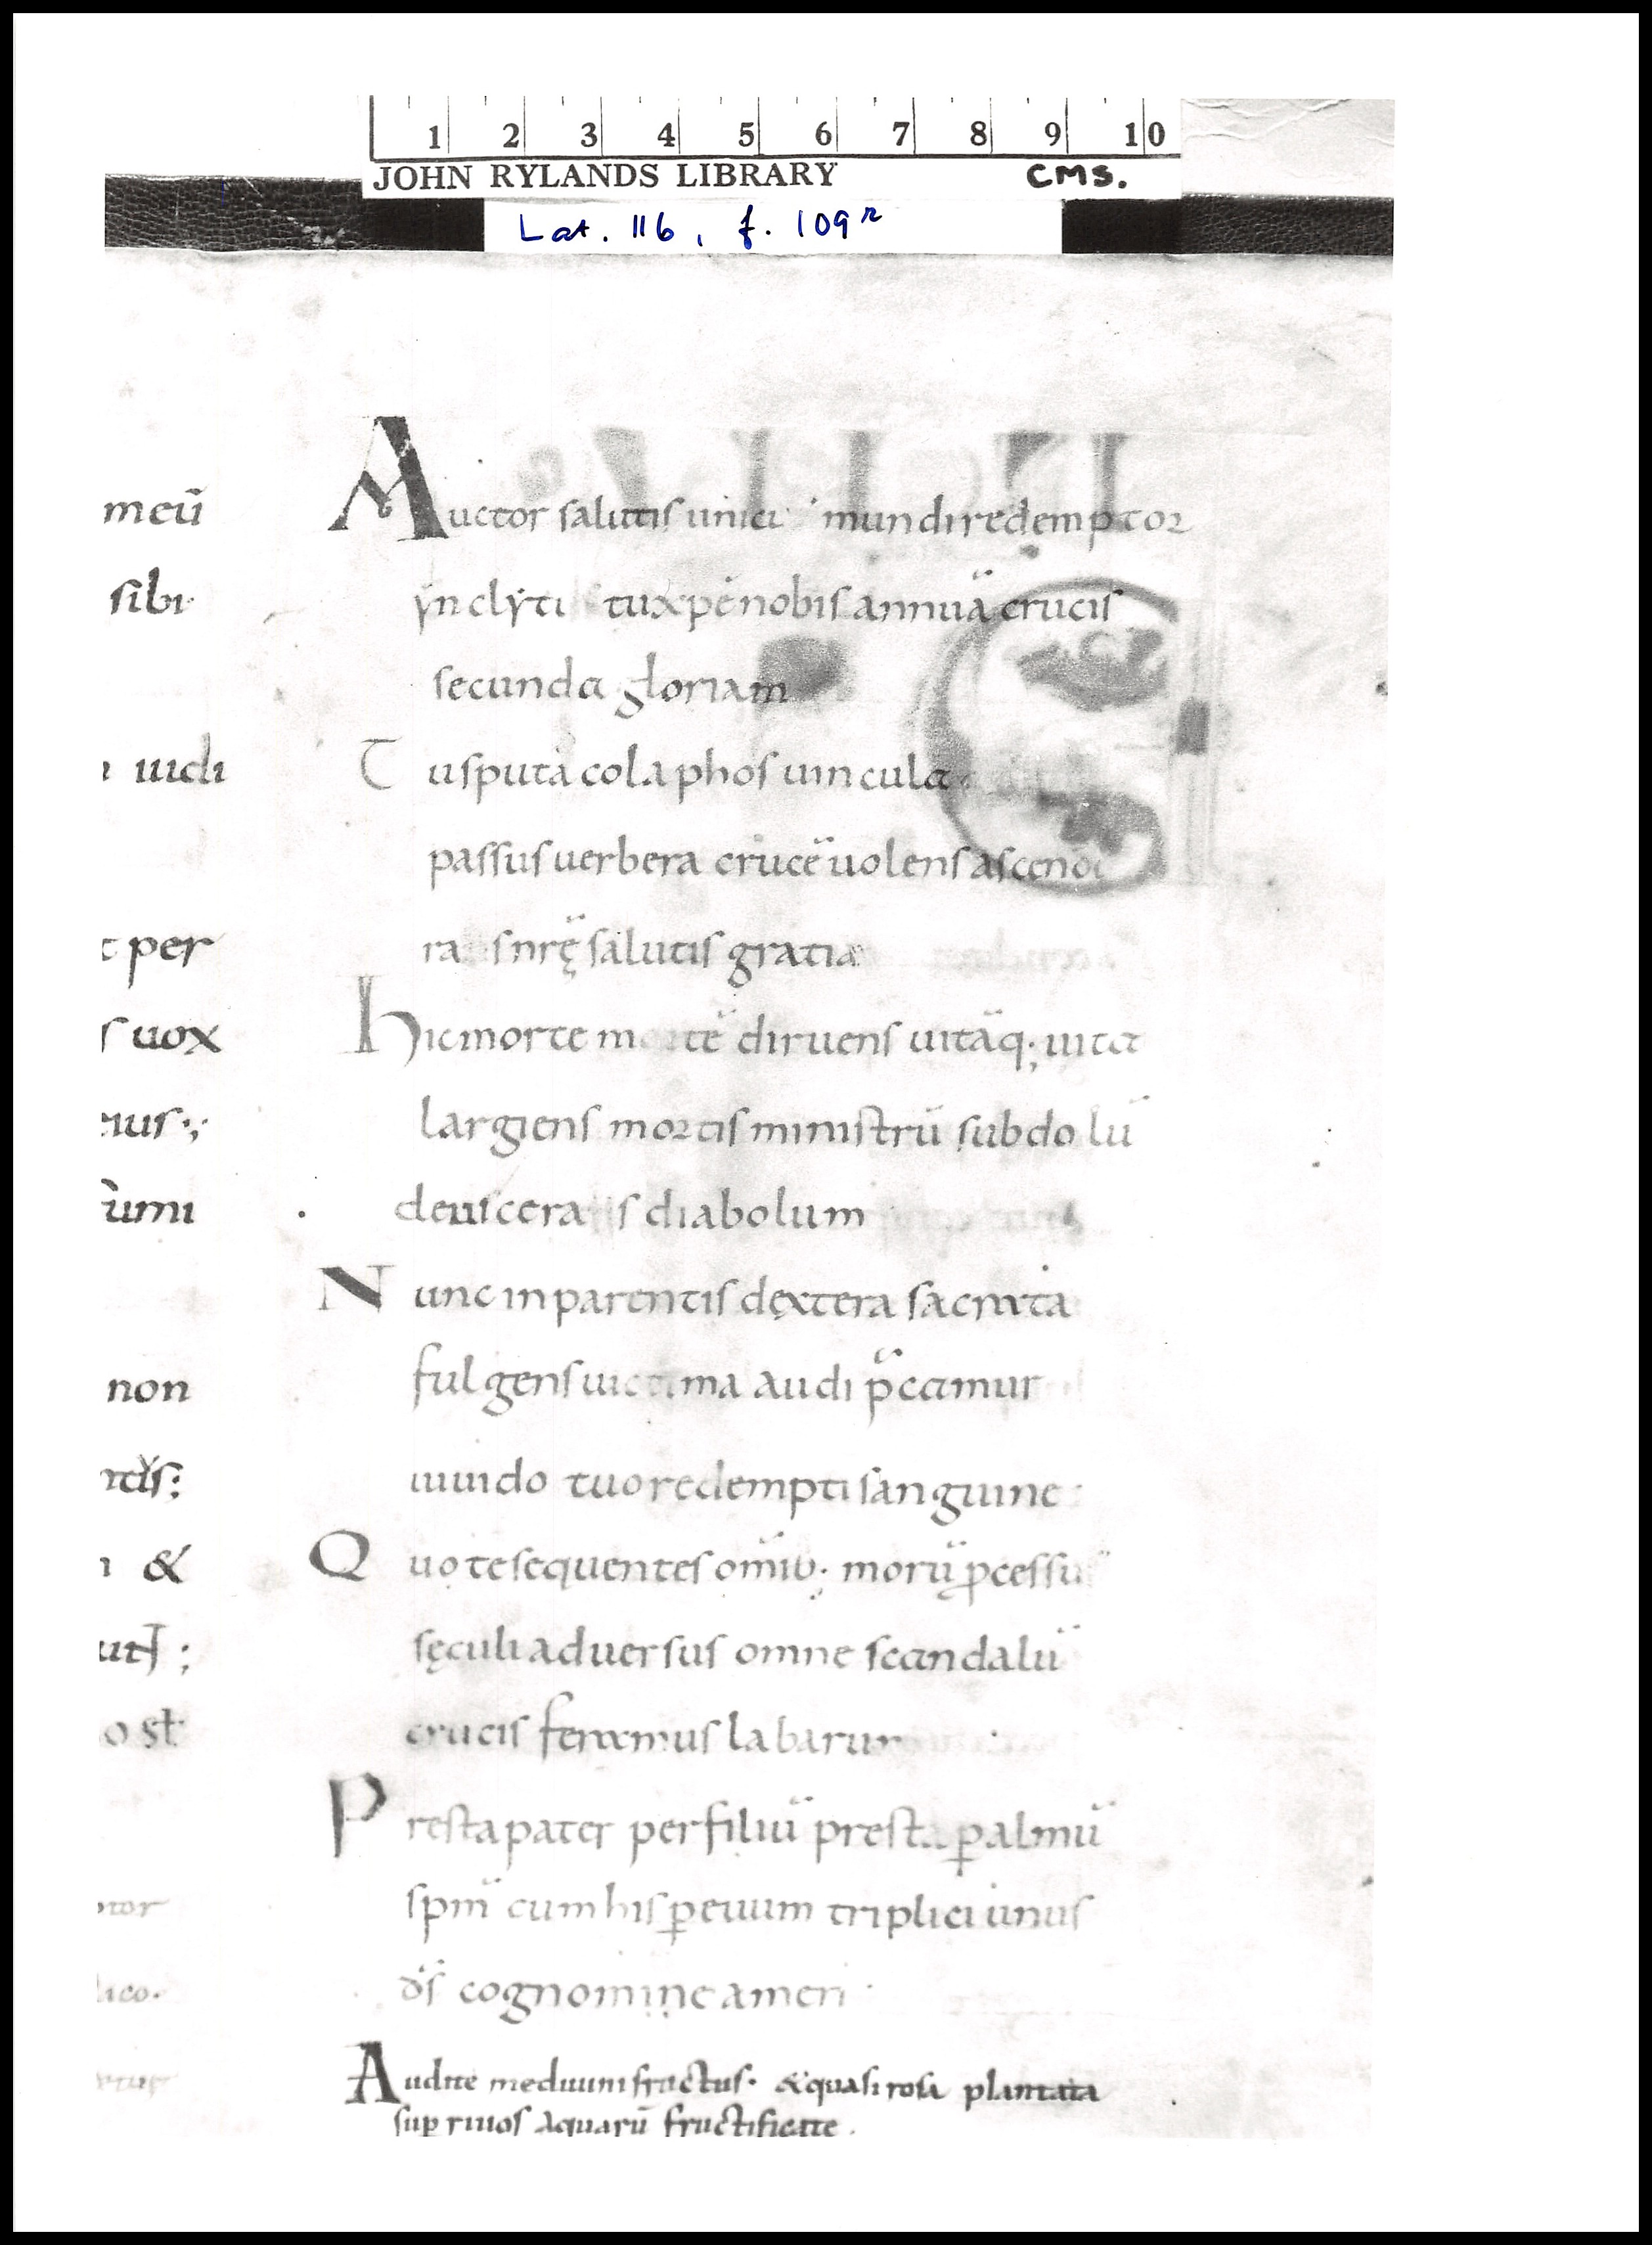 1 2 3 4 5 6 7 8 9 10
JOHN RYLANDS LIBRARY CMS.
Lat. 116, f. 109r
meū
sibi
uidi
per
uox
eius
non
&
Auctor salutis unici mundi redemptor
ynclyti tu xpē nobis annuā crucis
secunda gloriam
Tu sputa colaphos uincula
passus uerbera crucē uolens
nrę salutis gratia
hic morte diruens uitāq; uita
largiens mortis ministrū subdolū
diabolum
Nunc in parentis dextera sacrata
fulgens uictima audi p̄camur
uiuido tuo redempti sanguine
Quo te sequentes om̄ib; morū ꝓcessu
sęculi aduersus omne scandalū
crucis feramus labarum
Presta pater per filiū presta ꝑ almū
spm̄ cum his ꝑ euum triplici unus
ds̄ cognomine amen
Audite me diuini fructus. & quasi rosa plantata
suꝑ riuos aquarū fructificate.